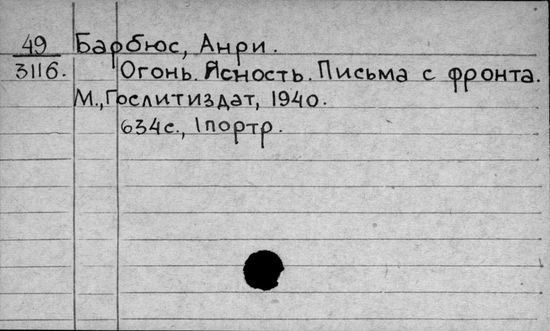 49 Барбюс, Анри.
3116. Огонь. Ясность. Письма с фронта.
М., Гослитиздат, 1940.
634с., 1портр.